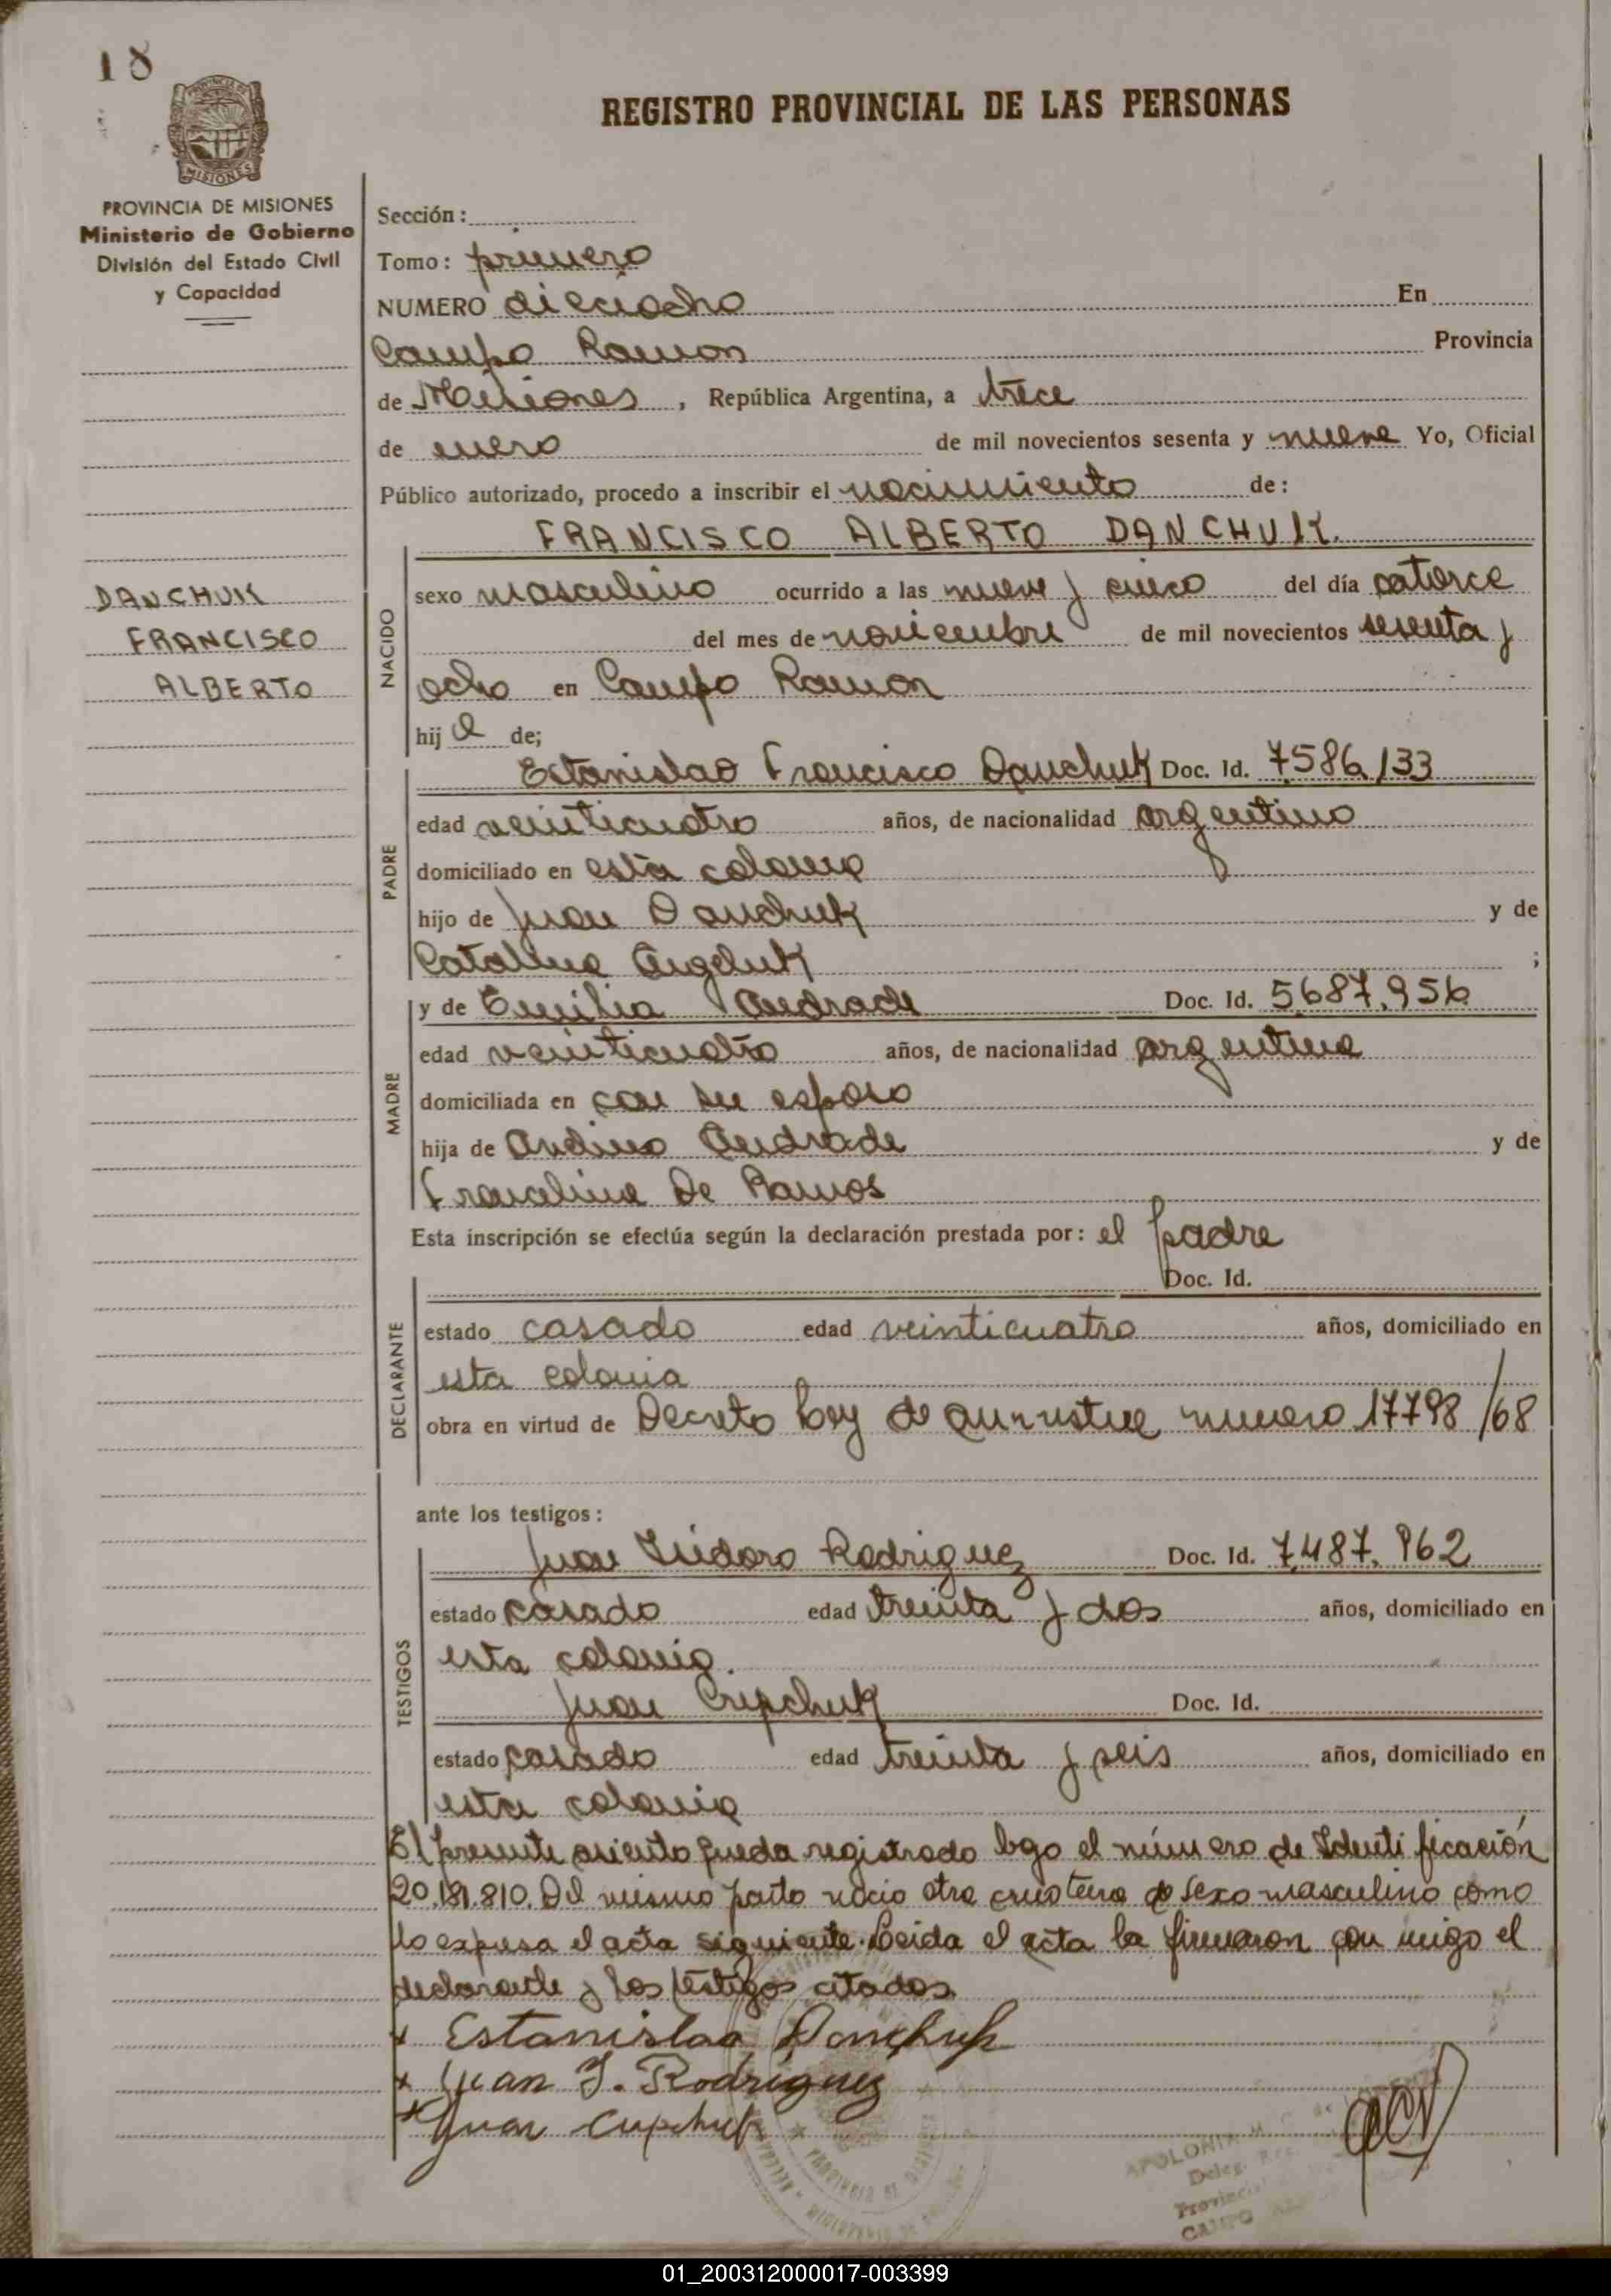 18
REGISTRO PROVINCIAL DE LAS PERSONAS
MISIONES
PROVINCIA DE MISIONES
Ministerio de Gobierno
División del Estado Civil
y Capacidad
Sección:
Tomo: primero
NUMERO dieciocho En
Campo Ramon Provincia
de Misiones, República Argentina, a trece
de enero de mil novecientos sesenta y nueve Yo, Oficial
Público autorizado, procedo a inscribir el nacimiento de:
FRANCISCO ALBERTO DANCHUK.
DANCHUK
FRANCISCO
ALBERTO
NACIDO
sexo masculino ocurrido a las nueve y cinco del día catorce
del mes de noviembre de mil novecientos sesenta y
ocho en Campo Ramon
hijo de;
PADRE
Estanislao Francisco Danchuk Doc. Id. 7.586.133
edad veinticuatro años, de nacionalidad argentino
domiciliado en esta colonia
hijo de Juan Danchuk y de
Catalina ;
MADRE
y de Emilia Andrade Doc. Id. 5.687.956
edad veinticuatro años, de nacionalidad argentina
domiciliada en con su esposo
hija de Andrade y de
Francelina De Ramos
Esta inscripción se efectúa según la declaración prestada por: el padre
Doc. Id.
DECLARANTE
estado casado edad veinticuatro años, domiciliado en
esta colonia
obra en virtud de Decreto Ley de numero 17798/68
ante los testigos:
TESTIGOS
Juan Isidoro Rodriguez Doc. Id. 7.487.962
estado casado edad treinta y dos años, domiciliado en
esta colonia.
Juan Doc. Id.
estado casado edad treinta y seis años, domiciliado en
esta colonia
El presente asiento queda registrado bajo el número de Identificación
20.181.810. Del mismo parto nacio otra de sexo masculino como
lo expresa el acta siguiente. Leida el acta la firmaron con migo el
declarante y los testigos citados.
x Estanislao Danchuk
x Juan I. Rodriguez
x Juan
APOLONIA M. C. de
Deleg.
Provincial
CAMPO
01_200312000017-003399